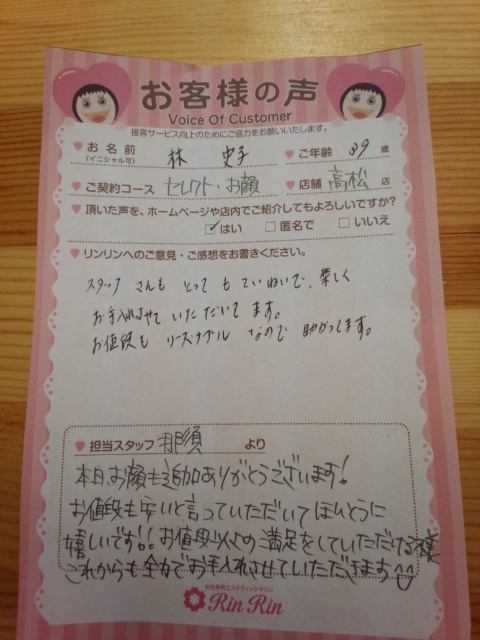 お客様の声
Voice Of Customer
接客サービス向上のためにご協力をお願いいたします。
お名前 林 史子 ご年齢 39 歳
(イニシャル可)
ご契約コース セレクト・お顔 店舗 高松 店
頂いた声を、ホームページや店内でご紹介してもよろしいですか?
はい 匿名で いいえ
リンリンへのご意見・ご感想をお書きください。
スタッフさんも とっても ていねいで、楽しく
お手入れさせていただいてます。
お値段も リーズナブル なので 助かってます。
担当スタッフ 那須 より
本日、お顔も追加ありがとうございます!
お値段も安いと言っていただいてほんとうに
嬉しいです!!お値段以上の満足をしていただける様
これからも全力でお手入れさせていただきます
女性専用エステティックサロン
Rin Rin